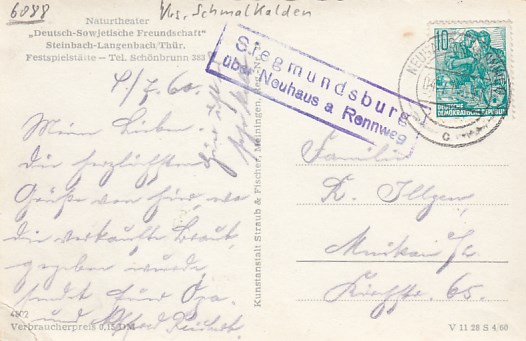 6088
Krs. Schmalkalden
Naturtheater
„Deutsch-Sowjetische Freundschaft"
Steinbach-Langenbach/Thür.
Festspielstätte – Tel. Schönbrunn 383
4/7. 60.
Meine Lieben.
die herzlichsten
Grüße von hier, wo
die verkaufte Braut,
gegeben wurde
sendet
und Alfred
4809
Verbraucherpreis 0,15 DM
Kunstanstalt Straub & Fischer, Meiningen,
Siegmundsburg
über Neuhaus a Rennweg
10
DEUTSCHE
DEMOKRATISCHE REPUBLIK
c
Familie
K. Illgen,
65.
V 11 28 S 4/60